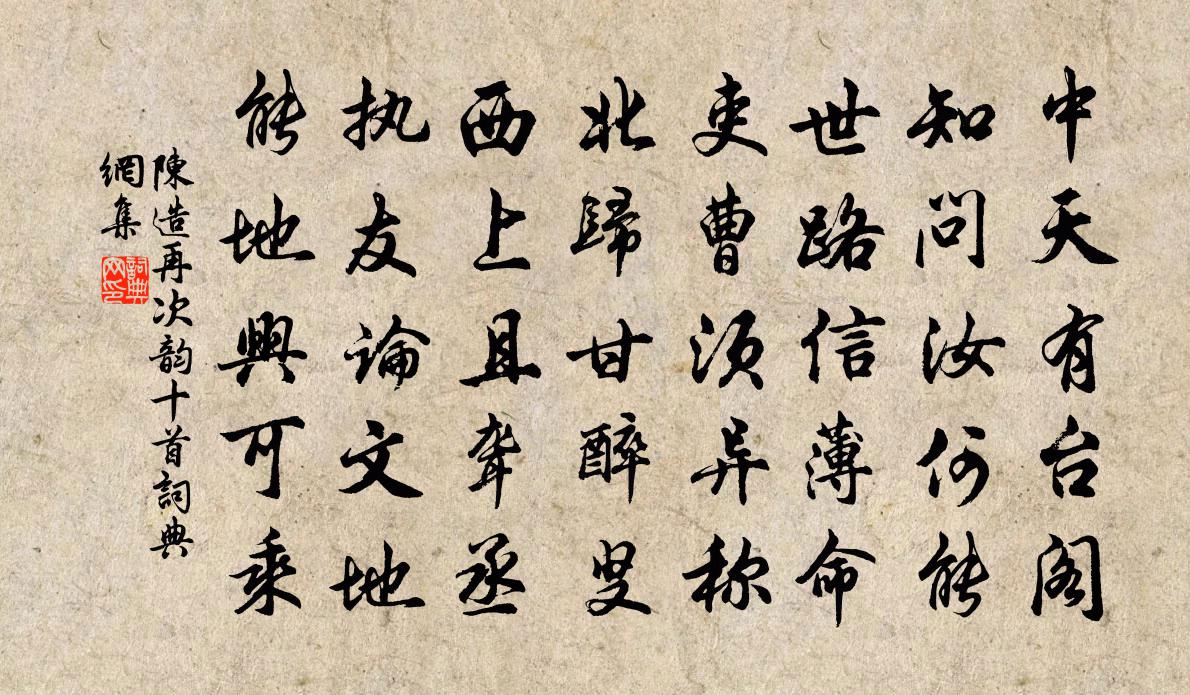 中天有台阁
知问汝何能
世路信薄命
吏曹须异称
北歸甘醉叟
西上且聋丞
执友論文地
能地興可乘
陳造再次韵十首詞典
網集
詞典
网印